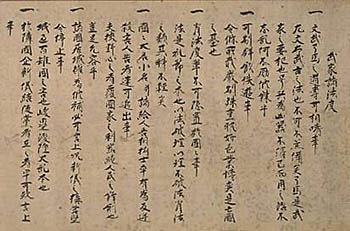 武家諸法度
一文武弓馬之道専可相嗜事
左文右武古之法也不可不兼備矣弓馬是武
家之要枢也号兵為凶器不得已而用之治不
忘乱何不励修錬乎
一可制群飲佚遊事
令條所載厳制殊重耽好色業博奕是亡国
之基也
一背法度輩不可隠置於国々事
法是礼節之本也以法破理以理不破法背法
之類其科不軽矣
一国々大名小名并諸給人各相抱士卒有為反逆
殺害人告者速可追出事
夫挟野心之者為覆国家之利器絶人民之鋒剣
豈足允容乎
一諸国居城雖為修補必可言上況新儀之構営堅
令停止事
城過百雉国之害也峻塁浚隍大乱之本也
一於隣国企新儀結徒党者有之者早可致言上
事